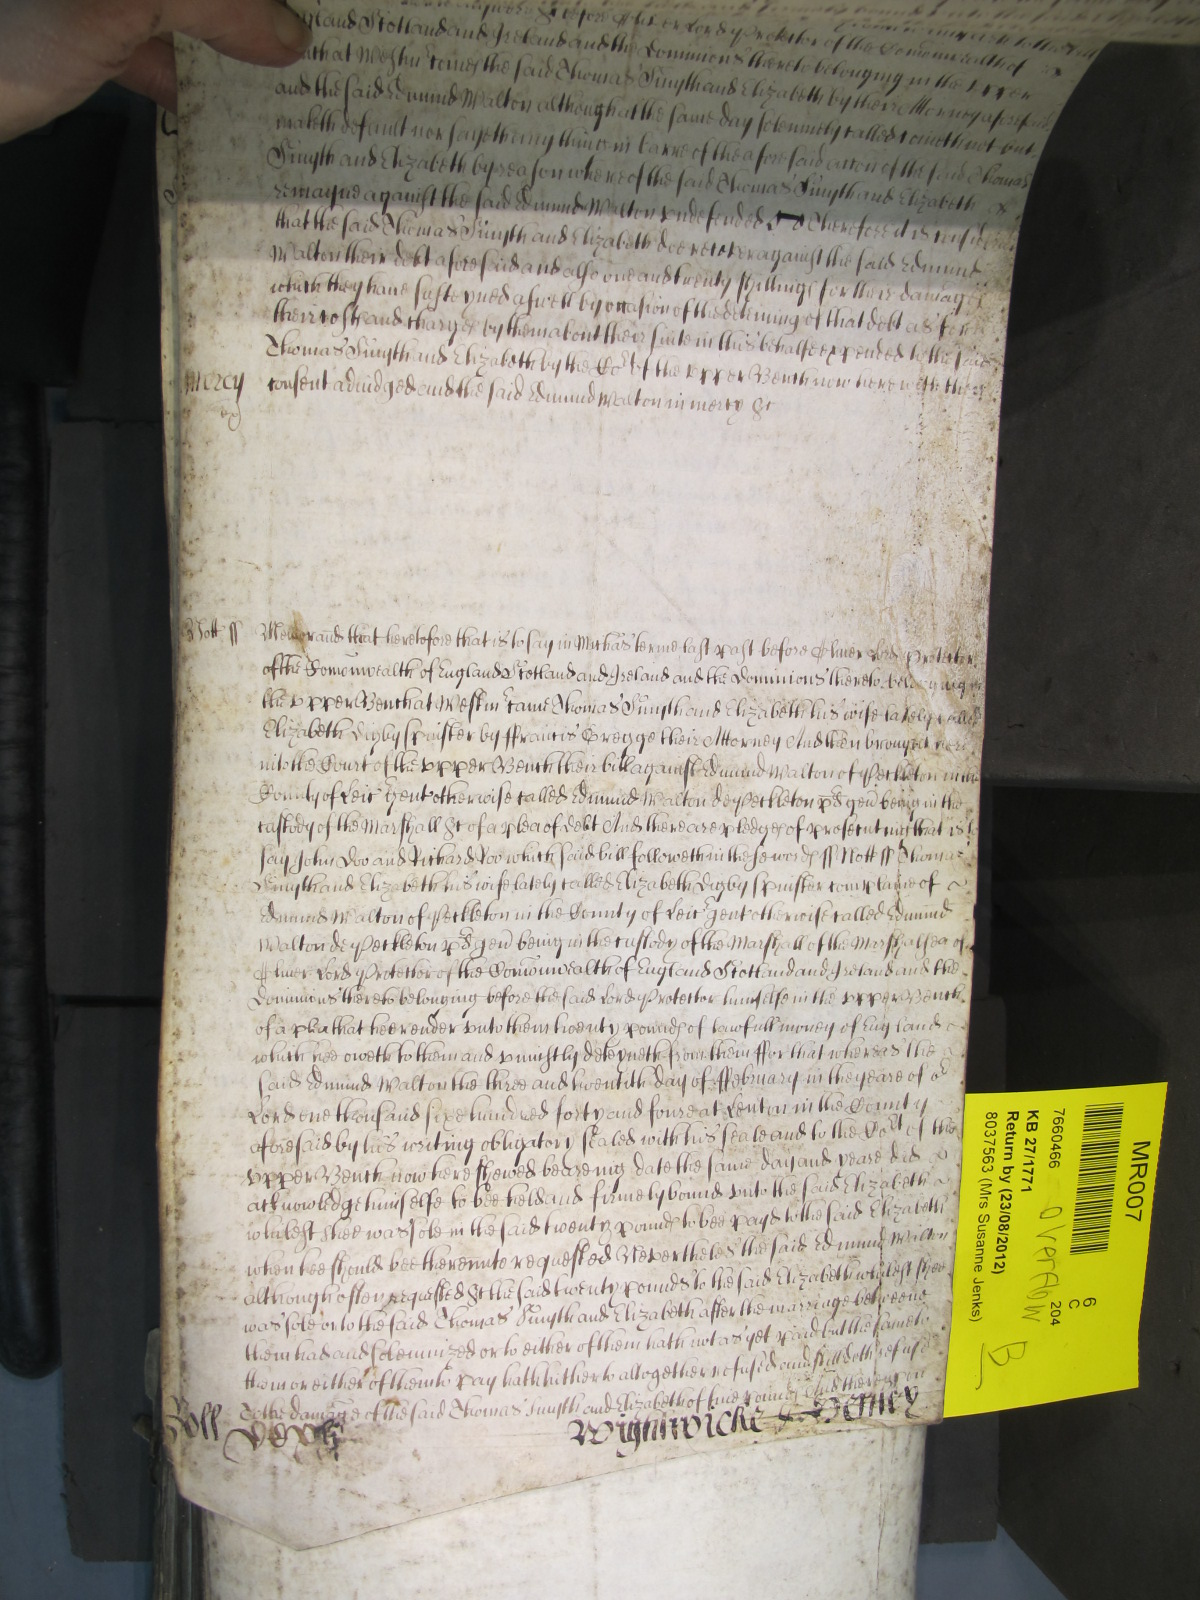 Oliver Lord Protector of the Comonwealth of
England Scotland and Ireland and the Dominions thereto belonging in the upper
Bench at Westmr comes the said Thomas Smyth and Elizabeth by their Attorney aforesaid
and the said Edmund Walton although at the same day solemnely called cometh not but
maketh default nor sayeth any thing in barre of the aforesaid accon of the said Thomas
Smyth and Elizabeth by reason whereof the said Thomas Smyth and Elizabeth
remayne against the said Edmund Walton undefended Therefore it is considered
that the said Thomas Smyth and Elizabeth doe recover against the said Edmund
Walton their debt aforesaid and also one and twenty shillings for their damages
which they have susteyned aswell by occasion of the deteining of that debt as for
their costs and charges by them about their suite in this behalfe expended to the said
Thomas Smyth and Elizabeth by the Cort of the upper Bench now here with their
mercy
consent adiudged and the said Edmund Walton in mercy &c
Nott ss
Memorand that heretofore that is to say in Michas terme last past before Oliver Lord Protector
of the Comonwealth of England Scotland and Ireland and the Dominions thereto belonging in
the upper Bench at Westmr came Thomas Smyth and Elizabeth his wife lately called
Elizabeth Digby spinster by ffrancis Gregge their Attorney And then brought here
into the Court of the upper Bench their bill against Edmund Walton of Peckleton in the
County of Leicr gent otherwise called Edmund Walton de Peckleton pd gen being in the
custody of the Marshall &c of a plea of debt And there are pledges of prosecuting that is to
say John Doo and Richard Roo which said bill followeth in these words ss Nott ss Thomas
Smyth and Elizabeth his wife lately called Elizabeth Digby spinster complaine of
Edmund Walton of Peckleton in the County of Leicr gent otherwise called Edmund
Walton de Peckleton pd gen being in the custody of the Marshall of the Marshalsea of
Oliver Lord Protector of the Comonwealth of England Scotland and Ireland and the
Dominions thereto belonging before the said Lord Protector himselfe in the upper Bench
of a plea that hee render unto them twenty pounds of lawfull money of England
which hee oweth to them and uniustly deteyneth from them ffor that whereas the
said Edmund Walton the three and twentith day of ffebruary in the yeare of or
Lord one thousand sixe hundred forty and foure at Lenton in the County
aforesaid by his writing obligatory sealed with his seale and to the Cort of the
upper Bench now here shewed beareing date the same day and yeare did
acknowledge himselfe to bee held and firmely bound unto the said Elizabeth
whilest shee was sole in the said twenty pounds to bee payd to the said Elizabeth
when hee should bee thereunto requested Neverthelesse the said Edmund Walton
although often requested &c the said twenty pounds to the said Elizabeth whilest shee
was sole or to the said Thomas Smyth and Elizabeth after the marriage betweene
them had and solemnized or to either of them hath not as yet paid but the same to
them or either of them to pay hath hitherto altogether refused and still doth refuse
To the damage of the said Thomas Smyth and Elizabeth of five pounds And thereupon
Roll
Wightwicke &
MR007
6
C
7660466
204
overflow
KB 27/1771
Return by (23/08/2012)
8037563 (Mrs Susanne Jenks)
B